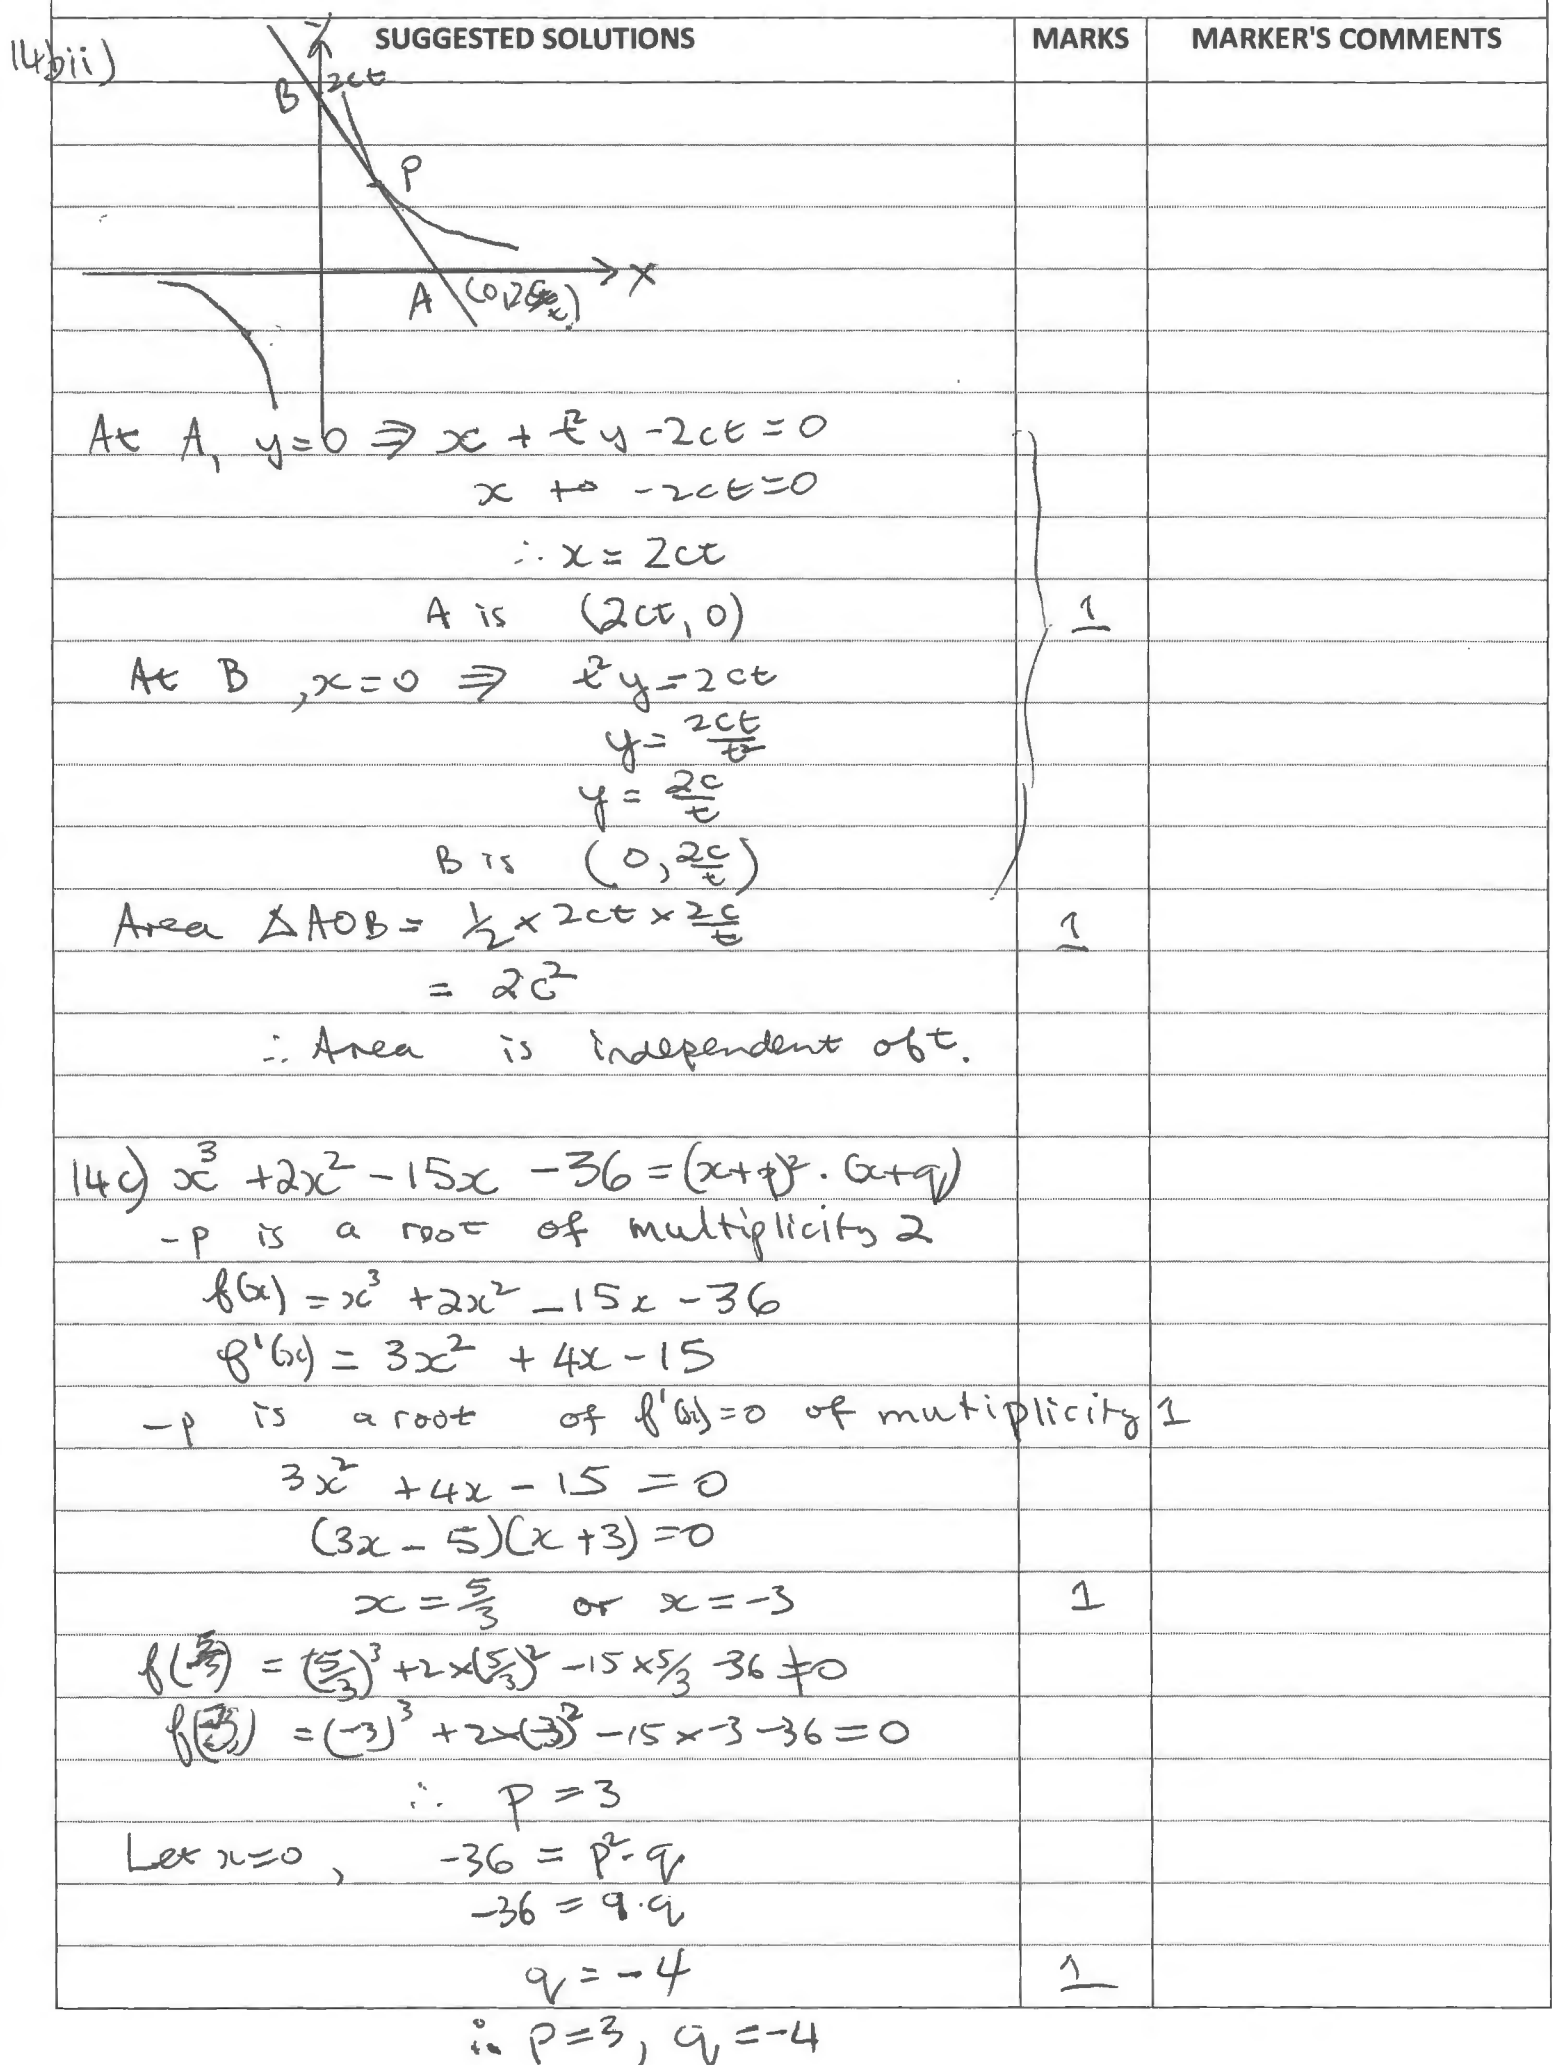 SUGGESTED SOLUTIONS MARKS MARKER'S COMMENTS
14bii)
y
B 2ct
P
X
A (0,2
At A, y=0 ⇒ x + t²y - 2ct = 0
x + 0 - 2ct = 0
∴ x = 2ct
A is (2ct, 0) 1
At B, x=0 ⇒ t²y = 2ct
y = 2ct/t²
y = 2c/t
B is (0, 2c/t)
Area △AOB = ½ × 2ct × 2c/t 1
= 2c²
∴ Area is independent of t.
14c) x³ + 2x² - 15x - 36 = (x+p)² . (x+q)
-p is a root of multiplicity 2
f(x) = x³ + 2x² - 15x - 36
f'(x) = 3x² + 4x - 15
-p is a root of f'(x)=0 of mutiplicity 1
3x² + 4x - 15 = 0
(3x - 5)(x + 3) = 0
x = 5/3 or x = -3 1
f(5/3) = (5/3)³ + 2×(5/3)² - 15×5/3 - 36 ≠ 0
f(-3) = (-3)³ + 2×(-3)² - 15×-3 - 36 = 0
∴ p = 3
Let x=0, -36 = p². q
-36 = 9.q
q = -4 1
∴ p=3, q=-4